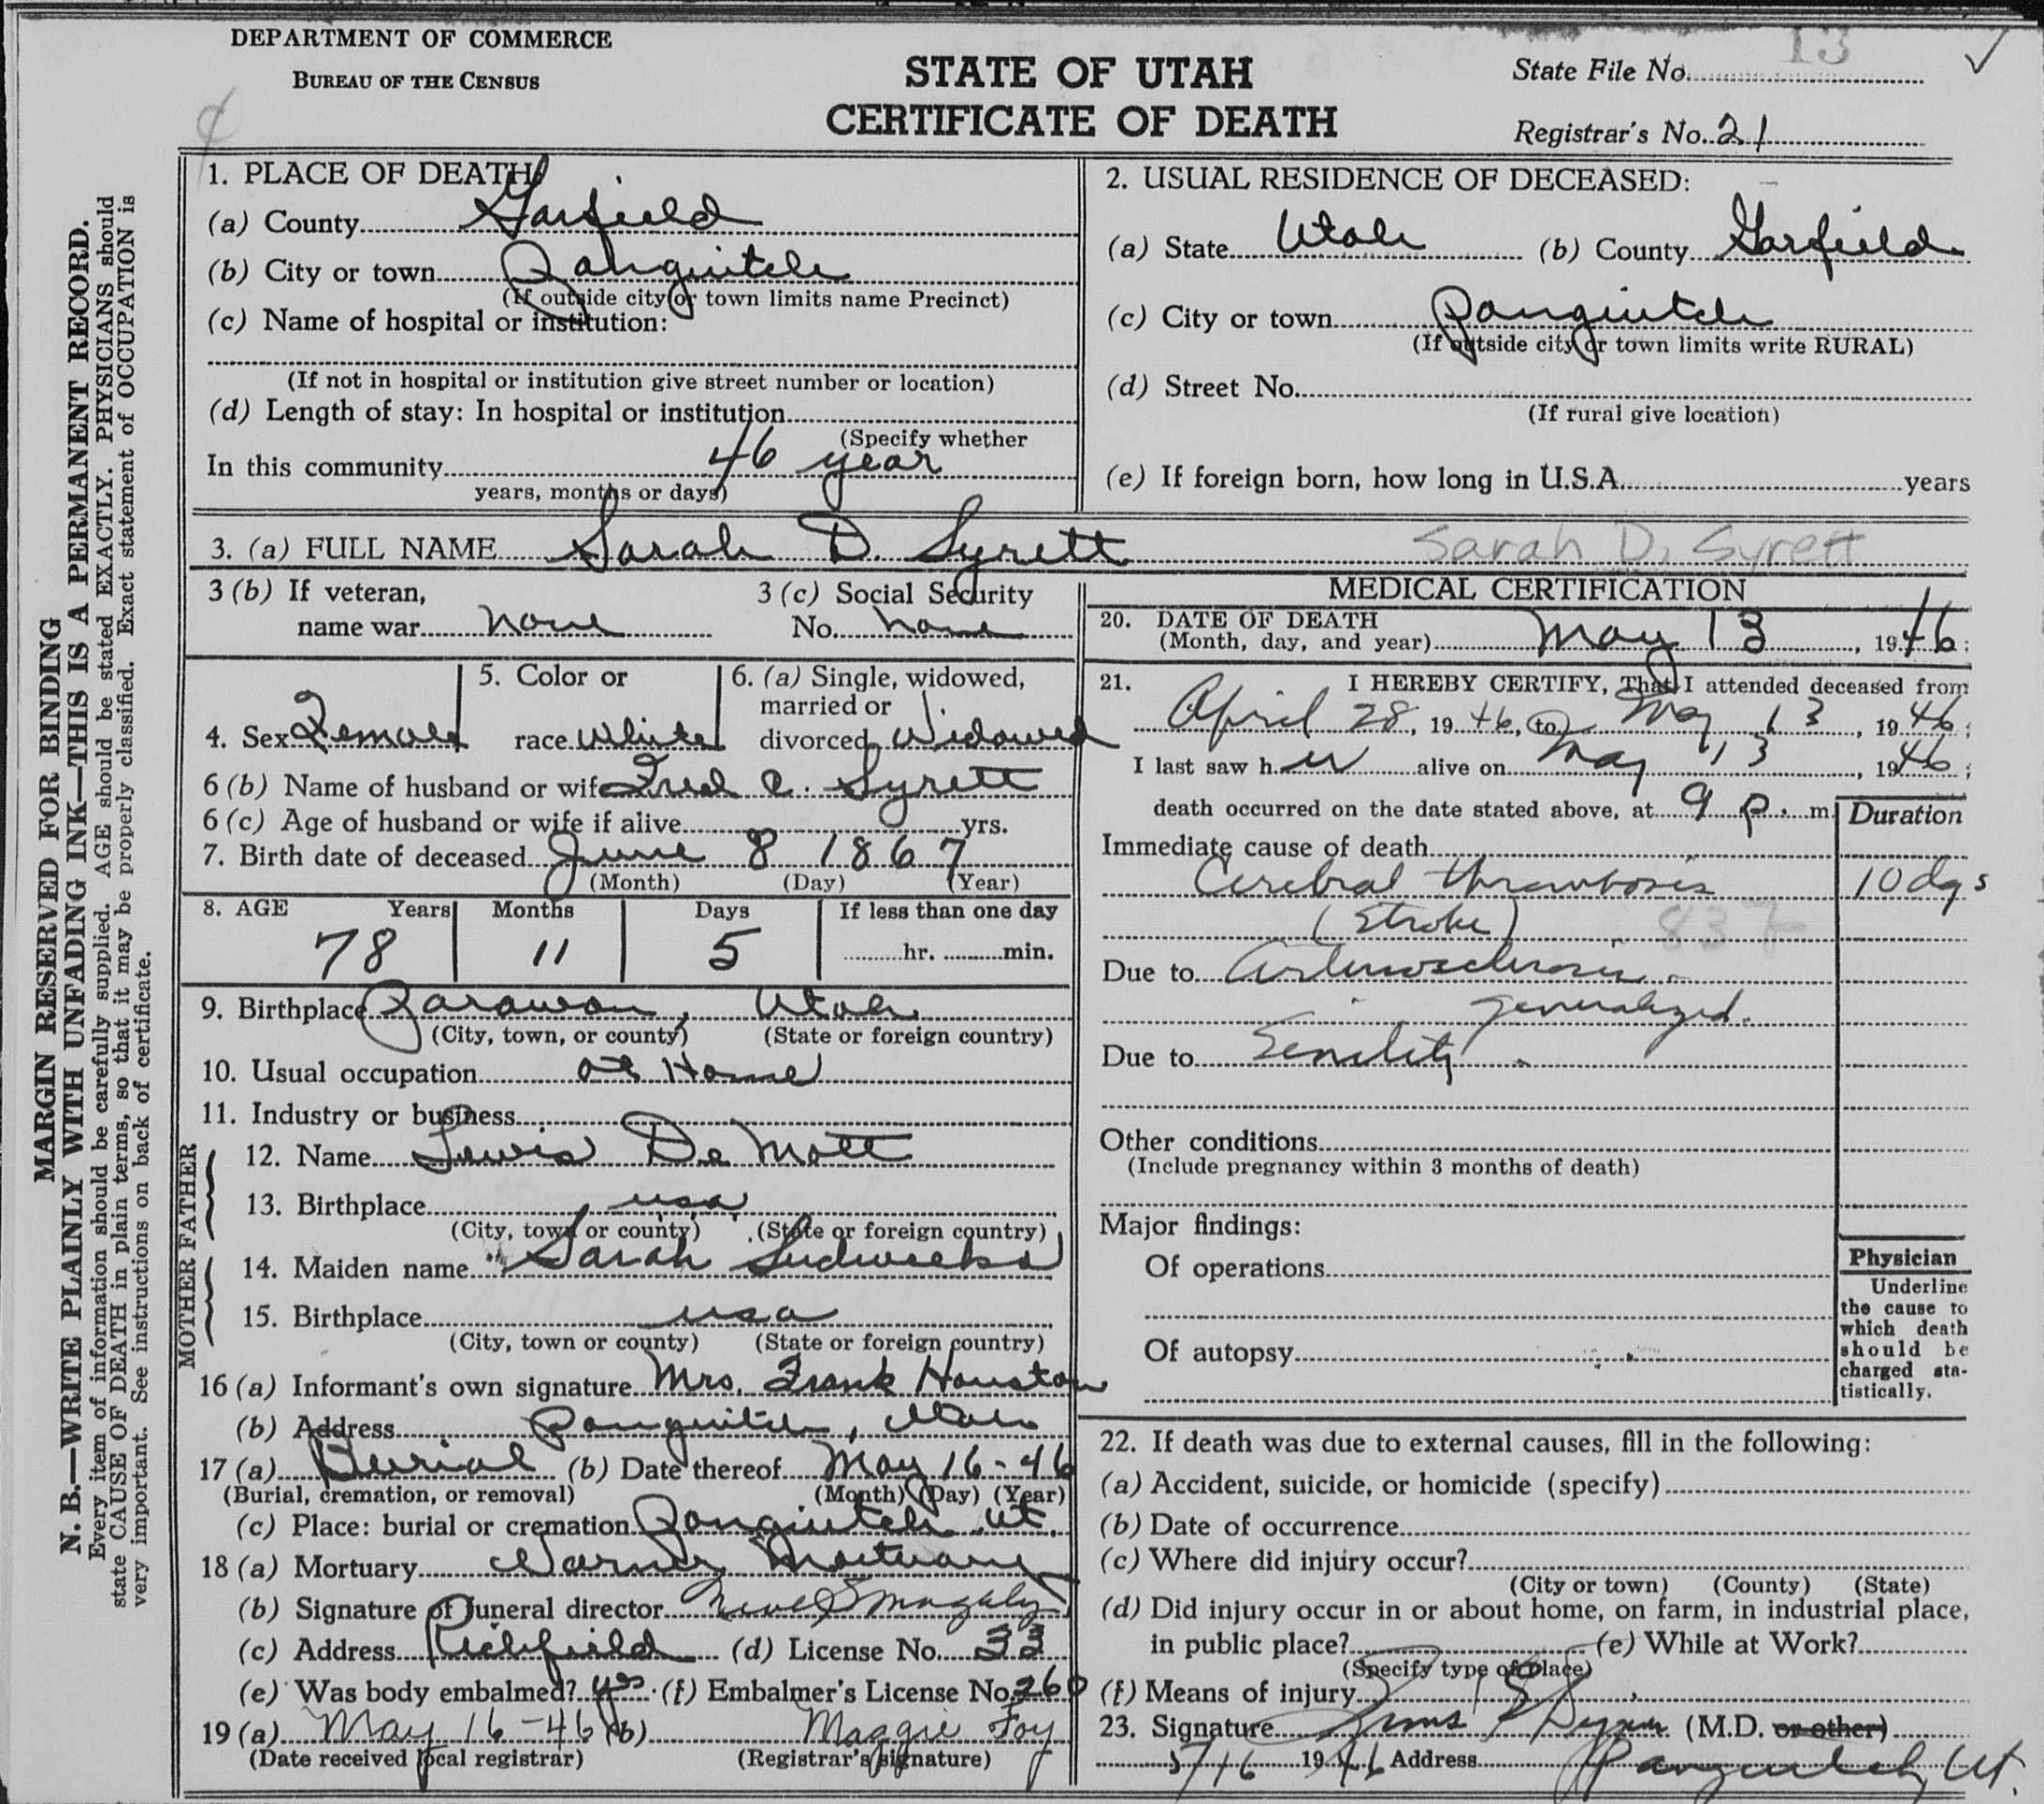 DEPARTMENT OF COMMERCE
BUREAU OF THE CENSUS
STATE OF UTAH
CERTIFICATE OF DEATH
State File No. 13
Registrar's No. 21
MARGIN RESERVED FOR BINDING
N. B.—WRITE PLAINLY WITH UNFADING INK—THIS IS A PERMANENT RECORD.
Every item of information should be carefully supplied. AGE should be stated EXACTLY. PHYSICIANS should
state CAUSE OF DEATH in plain terms, so that it may be properly classified. Exact statement of OCCUPATION is
very important. See instructions on back of certificate.
1. PLACE OF DEATH
(a) County Garfield
(b) City or town Panguitch
(If outside city or town limits name Precinct)
(c) Name of hospital or institution:
(If not in hospital or institution give street number or location)
(d) Length of stay: In hospital or institution
(Specify whether
In this community 46 year
years, months or days)
2. USUAL RESIDENCE OF DECEASED:
(a) State Utah (b) County Garfield
(c) City or town Panguitch
(If outside city or town limits write RURAL)
(d) Street No.
(If rural give location)
(e) If foreign born, how long in U.S.A. years
3. (a) FULL NAME Sarah D. Syrett Sarah D. Syrett
3 (b) If veteran,
name war none
3 (c) Social Security
No. none
4. Sex Female
5. Color or
race White
6. (a) Single, widowed,
married or
divorced Widowed
6 (b) Name of husband or wife Fred C. Syrett
6 (c) Age of husband or wife if alive yrs.
7. Birth date of deceased June 8 1867
(Month) (Day) (Year)
8. AGE Years Months Days If less than one day
78 11 5 hr. min.
9. Birthplace Parowan, Utah
(City, town, or county) (State or foreign country)
10. Usual occupation at Home
11. Industry or business
FATHER
12. Name Lewis De Mott
13. Birthplace usa
(City, town or county) (State or foreign country)
MOTHER
14. Maiden name Sarah Sudweeks
15. Birthplace usa
(City, town or county) (State or foreign country)
16 (a) Informant's own signature Mrs. Frank Houston
(b) Address Panguitch, Utah
17 (a) Burial (b) Date thereof May 16-46
(Burial, cremation, or removal) (Month) (Day) (Year)
(c) Place: burial or cremation Panguitch Ut.
18 (a) Mortuary Mortuary
(b) Signature of funeral director
(c) Address Richfield (d) License No. 33
(e) Was body embalmed? yes (f) Embalmer's License No. 260
19 (a) May 16-46 (b) Maggie Foy
(Date received local registrar) (Registrar's signature)
MEDICAL CERTIFICATION
20. DATE OF DEATH
(Month, day, and year) May 13, 1946;
21. I HEREBY CERTIFY, That I attended deceased from
April 28, 1946, to May 13, 1946;
I last saw her alive on May 13, 1946;
death occurred on the date stated above, at 9 p. m.
Duration
Immediate cause of death
Cerebral thrombosis 10 dys
(Stroke) 837
Due to Arteriosclerosis -
generalized.
Due to Senility.
Other conditions
(Include pregnancy within 3 months of death)
Major findings:
Of operations
Of autopsy
Physician
Underline
the cause to
which death
should be
charged sta-
tistically.
22. If death was due to external causes, fill in the following:
(a) Accident, suicide, or homicide (specify)
(b) Date of occurrence
(c) Where did injury occur?
(City or town) (County) (State)
(d) Did injury occur in or about home, on farm, in industrial place,
in public place? (e) While at Work?
(Specify type of place)
(f) Means of injury
23. Signature (M.D. or other)
5/16 1946 Address Panguitch, Ut.